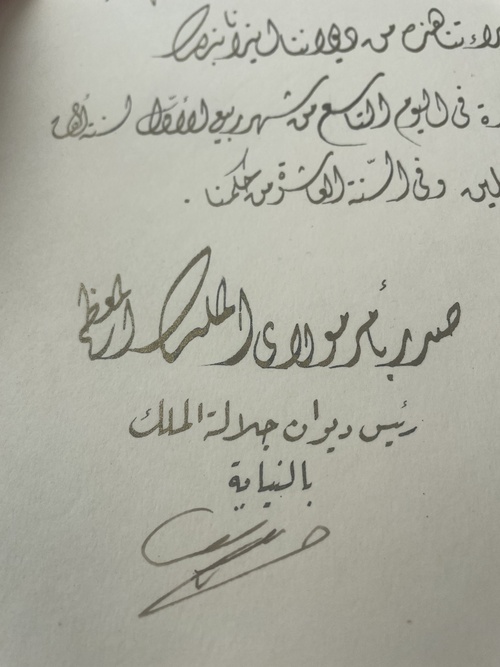 هذه من ديواننا ايذانا بذلك
في اليوم التاسع من شهر ربيع الأوّل لسنة ألف
وفي السّنة العاشرة من حكمنا .
صدر بأمر مولاي الملك المعظم
رئيس ديوان جلالة الملك
بالنيابة